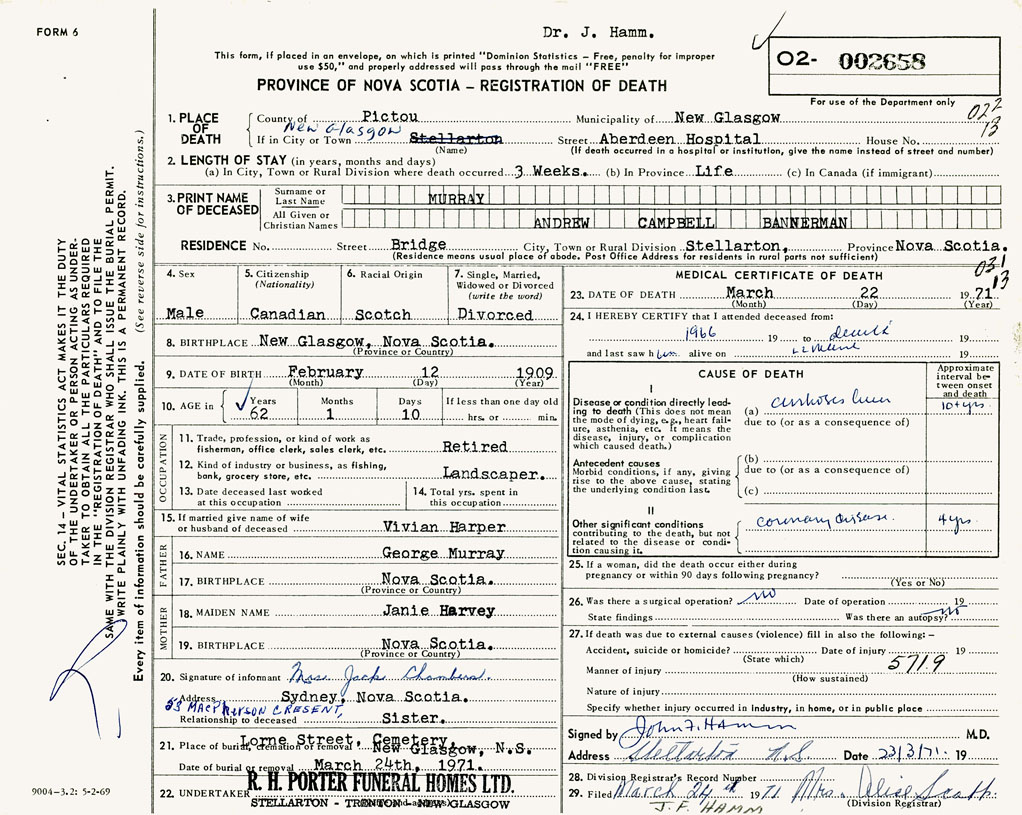 FORM 6
Dr. J. Hamm.
This form, if placed in an envelope, on which is printed "Dominion Statistics – Free, penalty for improper
use $50," and properly addressed will pass through the mail "FREE"
O2- 002658
PROVINCE OF NOVA SCOTIA – REGISTRATION OF DEATH
For use of the Department only
022
13
1. PLACE OF DEATH
County of Pictou Municipality of New Glasgow
New Glasgow
If in City or Town Stellarton Street Aberdeen Hospital House No.
(Name) (If death occurred in a hospital or institution, give the name instead of street and number)
2. LENGTH OF STAY (in years, months and days)
(a) In City, Town or Rural Division where death occurred 3 Weeks. (b) In Province Life (c) In Canada (if immigrant)
3. PRINT NAME OF DECEASED
Surname or Last Name MURRAY
All Given or Christian Names ANDREW CAMPBELL BANNERMAN
RESIDENCE No. Street Bridge City, Town or Rural Division Stellarton, Province Nova Scotia.
(Residence means usual place of abode. Post Office Address for residents in rural parts not sufficient)
031
13
4. Sex
Male
5. Citizenship
(Nationality)
Canadian
6. Racial Origin
Scotch
7. Single, Married,
Widowed or Divorced
(write the word)
Divorced
8. BIRTHPLACE New Glasgow, Nova Scotia.
(Province or Country)
9. DATE OF BIRTH February 12 1909
(Month) (Day) (Year)
10. AGE in Years Months Days If less than one day old
62 1 10 hrs. or min.
OCCUPATION
11. Trade, profession, or kind of work as
fisherman, office clerk, sales clerk, etc. Retired
12. Kind of industry or business, as fishing,
bank, grocery store, etc. Landscaper.
13. Date deceased last worked
at this occupation
14. Total yrs. spent in
this occupation
15. If married give name of wife
or husband of deceased Vivian Harper
FATHER
16. NAME George Murray
17. BIRTHPLACE Nova Scotia.
(Province or Country)
MOTHER
18. MAIDEN NAME Janie Harvey
19. BIRTHPLACE Nova Scotia.
(Province or Country)
20. Signature of informant Mrs. Jack Chambers.
Address Sydney, Nova Scotia.
53 MacPherson CRESENT,
Relationship to deceased Sister.
21. Place of burial, cremation or removal Lorne Street, Cemetery, New Glasgow, N.S.
Date of burial or removal March 24th, 1971.
22. UNDERTAKER R. H. PORTER FUNERAL HOMES LTD.
STELLARTON - TRENTON - NEW GLASGOW
MEDICAL CERTIFICATE OF DEATH
23. DATE OF DEATH March 22 1971
(Month) (Day) (Year)
24. I HEREBY CERTIFY that I attended deceased from:
1966 19 to death 19
and last saw him alive on 19
CAUSE OF DEATH
Approximate
interval be-
tween onset
and death
I
Disease or condition directly lead-
ing to death (This does not mean
the mode of dying, e.g., heart fail-
ure, asthenia, etc. It means the
disease, injury, or complication
which caused death.)
(a) cirrhoses liver 10+yrs.
due to (or as a consequence of)
Antecedent causes
Morbid conditions, if any, giving
rise to the above cause, stating
the underlying condition last.
(b)
due to (or as a consequence of)
(c)
II
Other significant conditions
contributing to the death, but not
related to the disease or condi-
tion causing it.
coronary disease. 4 yrs.
25. If a woman, did the death occur either during
pregnancy or within 90 days following pregnancy?
(Yes or No)
26. Was there a surgical operation? no Date of operation 19
State findings Was there an autopsy? no
27. If death was due to external causes (violence) fill in also the following: –
Accident, suicide or homicide? Date of injury 19
(State which)
5719
Manner of injury
(How sustained)
Nature of injury
Specify whether injury occurred in industry, in home, or in public place
Signed by John F. Hamm M.D.
Address Stellarton N.S. Date 23/3/71. 19
28. Division Registrar's Record Number
29. Filed March 24th 1971 Mrs. Alice Scott.
(Division Registrar)
J. F. HAMM
SEC. 14 – VITAL STATISTICS ACT MAKES IT THE DUTY
OF THE UNDERTAKER OR PERSON ACTING AS UNDER-
TAKER TO OBTAIN ALL THE PARTICULARS REQUIRED
IN THE "REGISTRATION OF DEATH" AND TO FILE THE
SAME WITH THE DIVISION REGISTRAR WHO SHALL ISSUE THE BURIAL PERMIT.
WRITE PLAINLY WITH UNFADING INK. THIS IS A PERMANENT RECORD.
Every item of information should be carefully supplied. (See reverse side for instructions.)
9004-3.2: 5-2-69